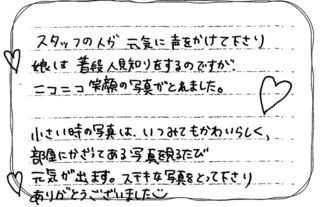 スタッフの人が 元気に声をかけて下さり
娘は 普段人見知りをするのですが、
ニコニコ笑顔の写真がとれました。
小さい時の写真は、いつみてもかわいらしく、
部屋にかざってある写真を観るたび
元気が出ます。ステキな写真をとって下さり
ありがとうございました